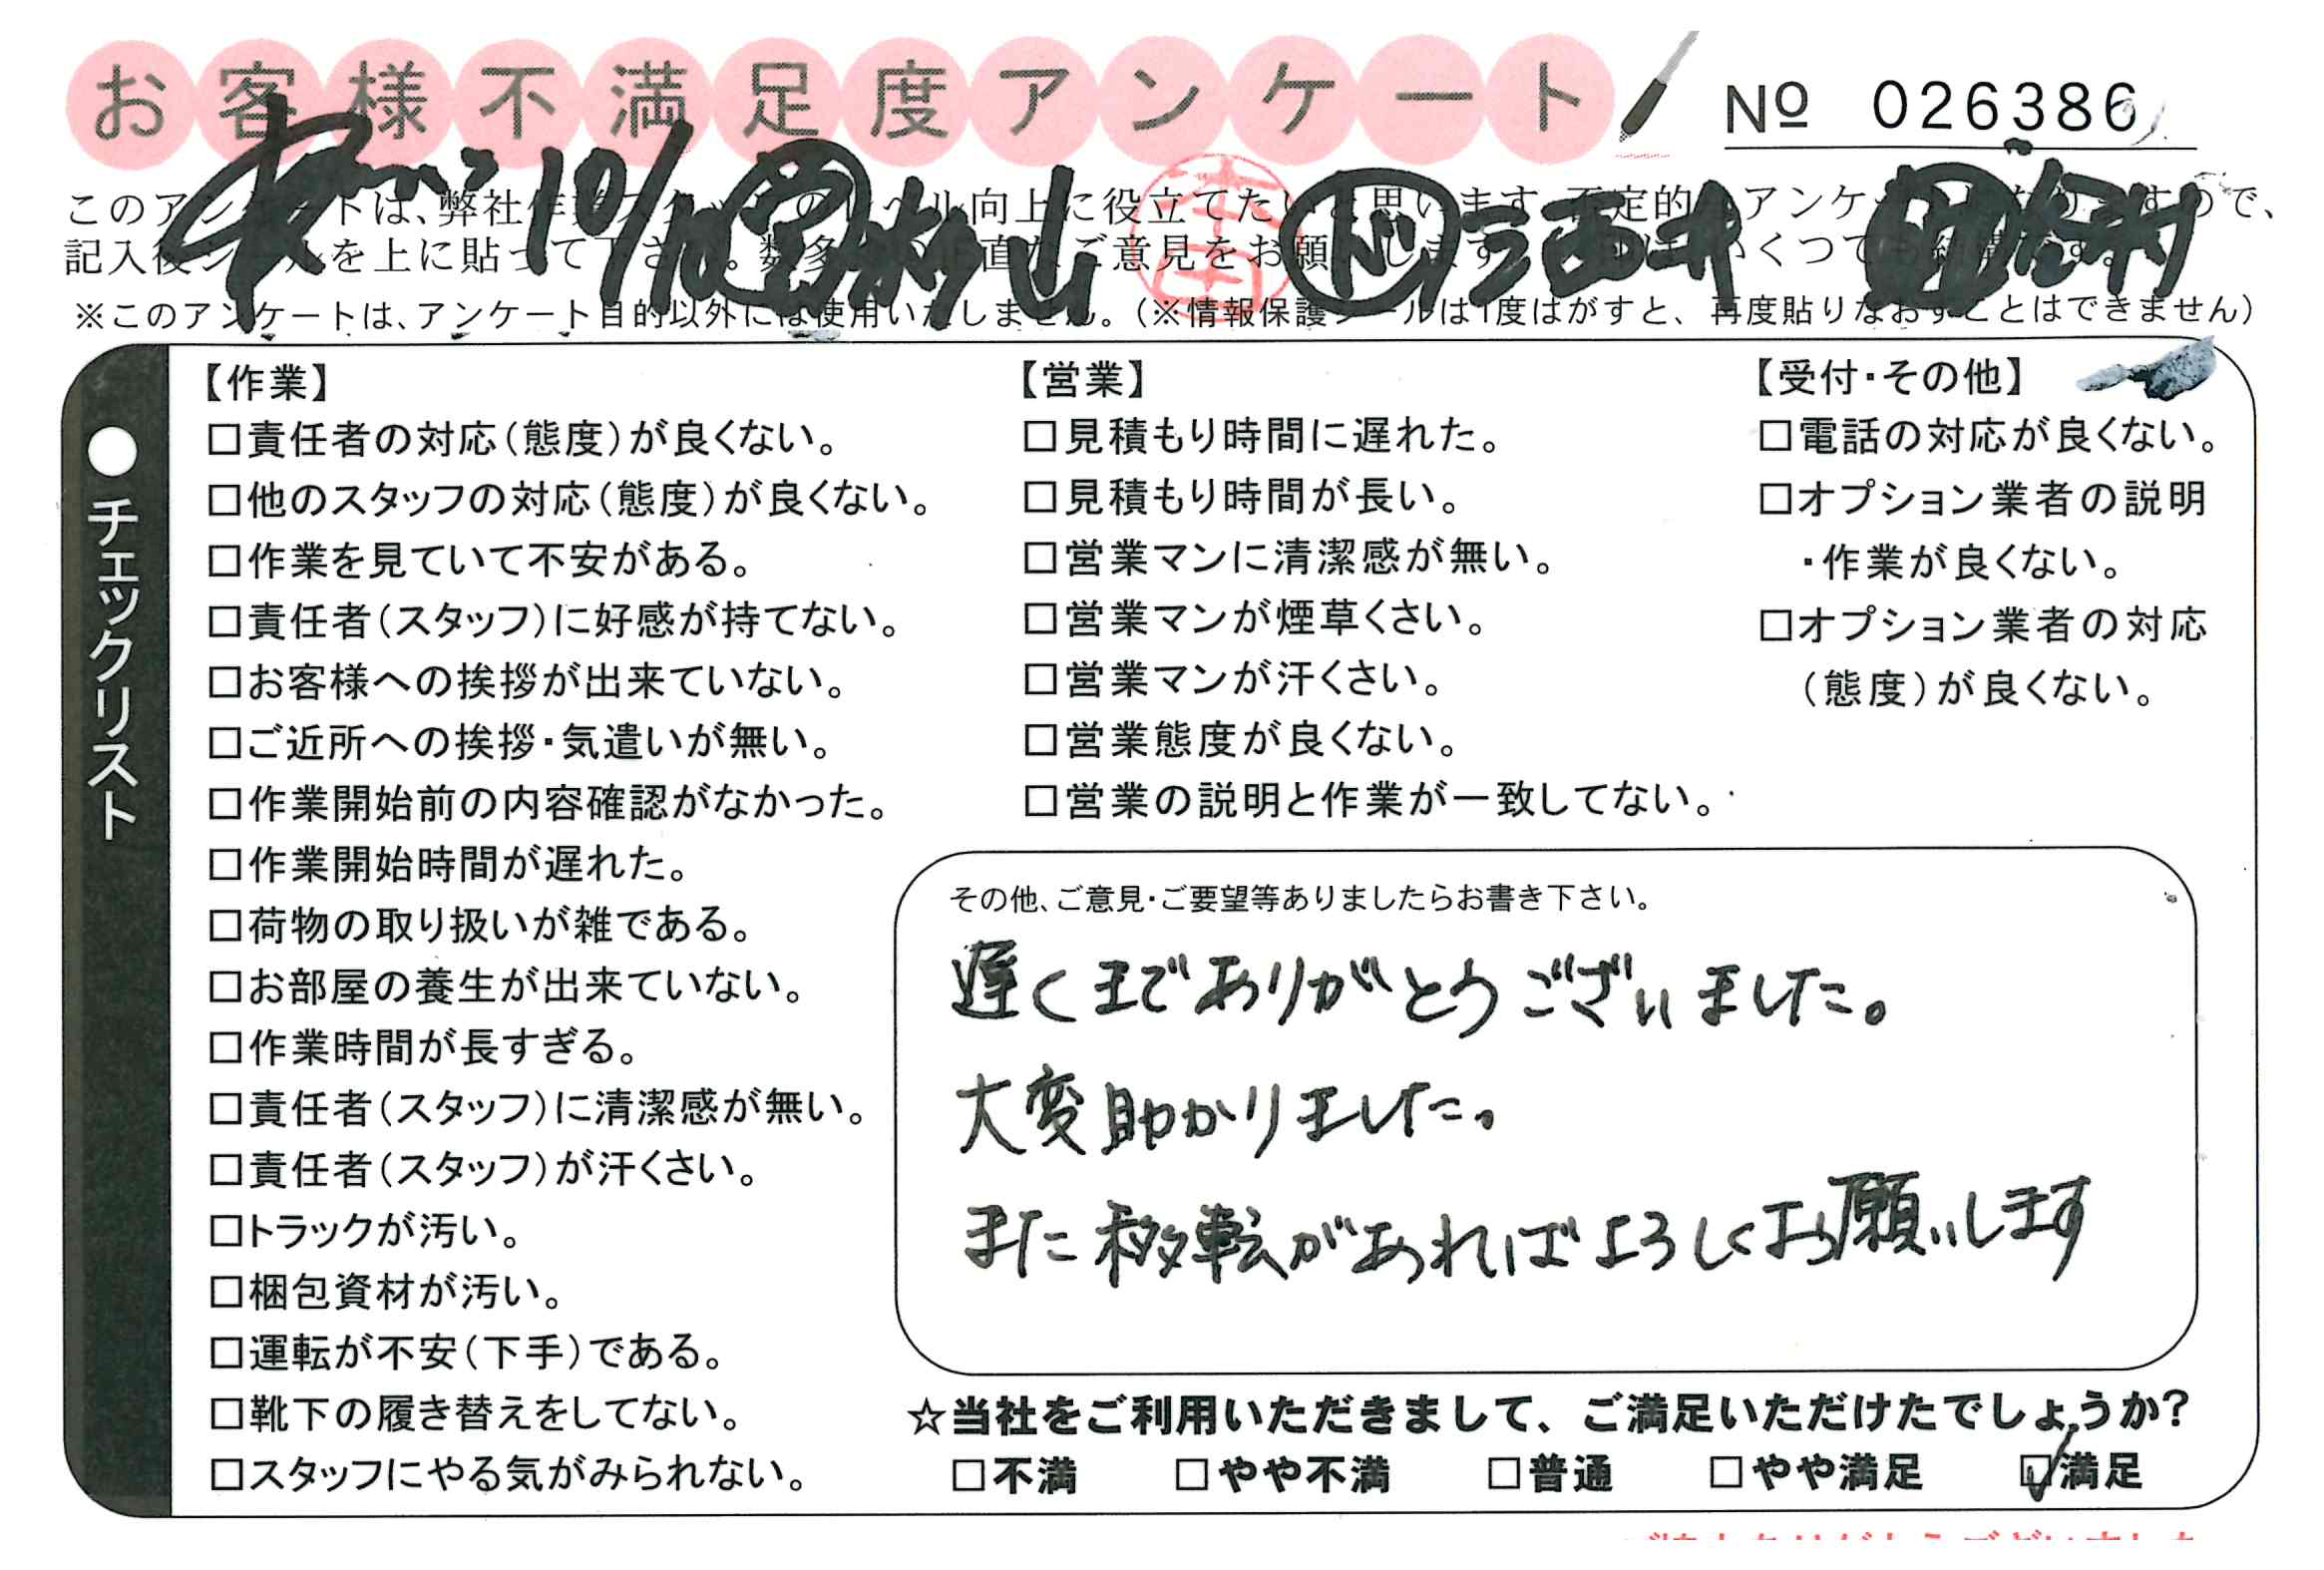 お客様不満足度アンケート
Nº 026386
このアンケートは、弊社作業スタッフのレベル向上に役立てたいと思います。否定的なアンケートになりますので、
記入後シールを上に貼って下さい。数多くの正直なご意見をお願いします。いくつでも結構です。
10/
本田
※このアンケートは、アンケート目的以外には使用いたしません。(※情報保護シールは1度はがすと、再度貼りなおすことはできません)
●チェックリスト
【作業】
□責任者の対応(態度)が良くない。
□他のスタッフの対応(態度)が良くない。
□作業を見ていて不安がある。
□責任者(スタッフ)に好感が持てない。
□お客様への挨拶が出来ていない。
□ご近所への挨拶・気遣いが無い。
□作業開始前の内容確認がなかった。
□作業開始時間が遅れた。
□荷物の取り扱いが雑である。
□お部屋の養生が出来ていない。
□作業時間が長すぎる。
□責任者(スタッフ)に清潔感が無い。
□責任者(スタッフ)が汗くさい。
□トラックが汚い。
□梱包資材が汚い。
□運転が不安(下手)である。
□靴下の履き替えをしてない。
□スタッフにやる気がみられない。
【営業】
□見積もり時間に遅れた。
□見積もり時間が長い。
□営業マンに清潔感が無い。
□営業マンが煙草くさい。
□営業マンが汗くさい。
□営業態度が良くない。
□営業の説明と作業が一致してない。
【受付・その他】
□電話の対応が良くない。
□オプション業者の説明
・作業が良くない。
□オプション業者の対応
(態度)が良くない。
その他、ご意見・ご要望等ありましたらお書き下さい。
遅くまでありがとうございました。
大変助かりました。
また移転があればよろしくお願いします
☆当社をご利用いただきまして、ご満足いただけたでしょうか?
□不満 □やや不満 □普通 □やや満足 ☑満足